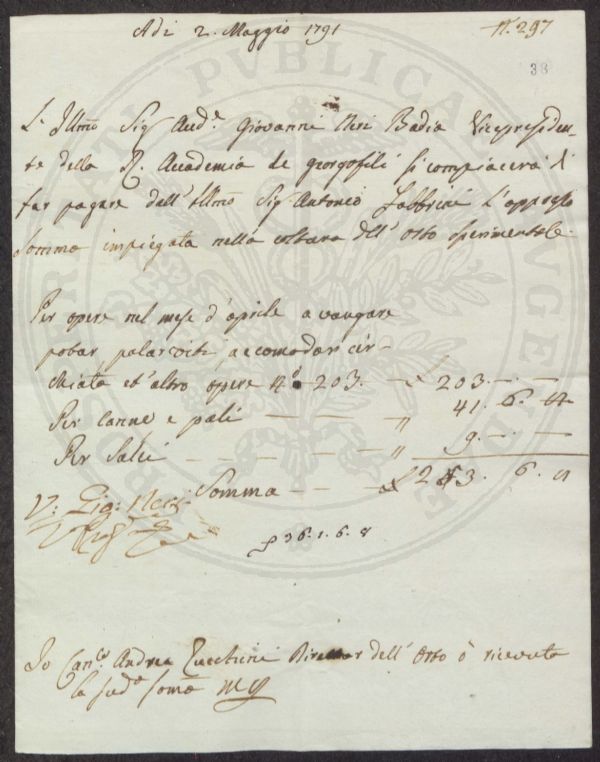 Adi 2. Maggio 1791
N.° 297
38
L'Illmo Sig Aud.e Giovanni Neri Badia Vicepresiden-
te della R. Accademia de georgofili si compiacerà di
far pagare dall'Illmo Sig Antonio Fabbrini l'appresso
somma impiegata nella coltura dell'Orto sperimentale.
Per opere nel mese d'aprile a vangare
potar, palar viti, accomodar cer-
chiate et altro opere N.° 203. — £ 203. — —
Per canne e pali — — — " 41. 6. 4
Per Salci — — — — " 9. — —
Somma — — £ 253. 6. 4
V: Gio: Neri
36. 1. 6. 8
Io Can.co Andrea Zucchini Direttor dell'Orto ò ricevuto
la sud.a somma
PROSPERITATI PVBLICAE AVGENDAE